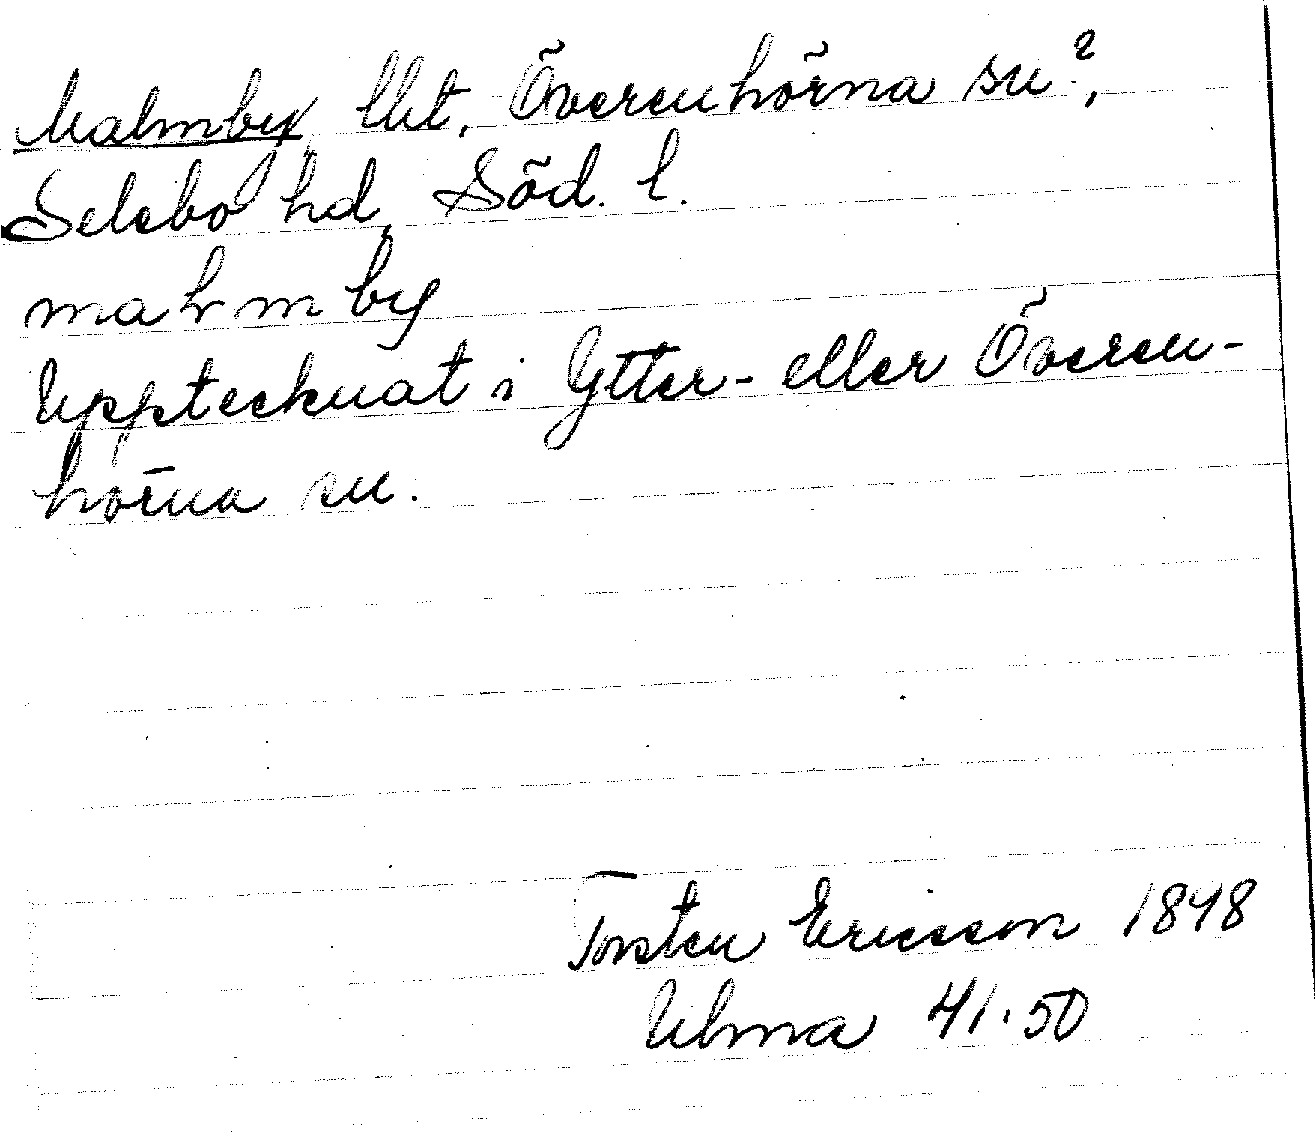 Malmby Uht, Överenhörna sn?,
Selebo hd, Söd. l.
malmby
Upptecknat i Ytter- eller Överen-
hörna sn.
Torsten Ericsson 1898
Ulma 41:50